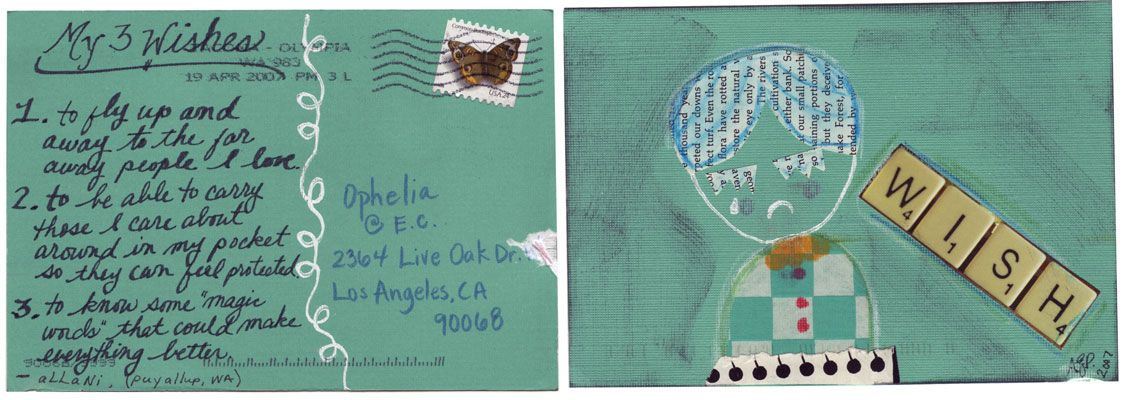 My 3 Wishes
OLYMPIA
WA 983
19 APR 2007 PM 3 L
USA24
1. to fly up and
away to the far
away people I love.
2. to be able to carry
those I care about
around in my pocket
so they can feel protected.
3. to know some "magic
words" that could make
everything better.
- aLLaNi, (puyallup, WA)
Ophelia
@ E.C.
2364 Live Oak Dr.
Los Angeles, CA
90068
thousand
peted our downs
fect turf. Even the
flora have rotted
store the natural
eye only by
The rivers
cultivation
either bank. So
our small patche
maining portions
but they deceive
make Forest, for
tended by
W4 I1 S1 H4
2007